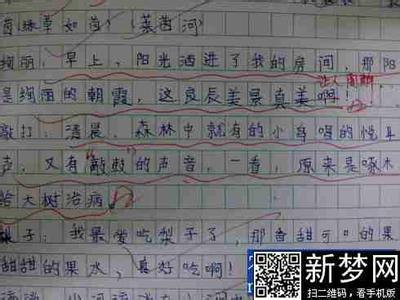 茵(绿草如茵)(莱茵河)
绚丽:早上,阳光洒进了我的房间,那阳
是绚丽的朝霞,这良辰美景真美啊!
敲打:清晨,森林中就有的小鸟唱的悦耳
声,又有"敲鼓"的声音,一看,原来是啄木
给大树治病。
梨子:我最爱吃梨子了,那香甜可口的果
甜甜的果水,真好吃啊!
新梦网
扫二维码,看手机版